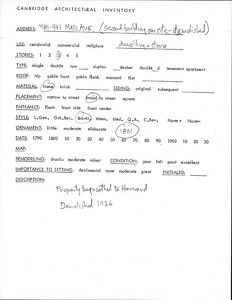 CAMBRIDGE ARCHITECTURAL INVENTORY
ADDRESS: MASS AVE. (second building on site - demolished)
USE: residential commercial religious dwelling + store
STORIES: 1 2 3 4 5
TYPE: single double row duplex decker double d tenement apartment
ROOF: hip gable front gable flank mansard flat
MATERIAL: frame brick SIDING: original subsequent
PLACEMENT: narrow to street broad to street square
ENTRANCE: flank front side front center
STYLE: L.Geo. Grk.Rev. Brk-It. Mans. Med. Q.A. C.Rev. None + None-
ORNAMENT: little moderate elaborate 1861
DATE: 1790 1800 10 20 30 40 50 60 70 80 90 1900 10 20 30
MAP:
REMODELING: drastic moderate minor CONDITION: poor fair good excellent
IMPORTANCE TO SETTING: detrimental none moderate great INITIALED:
DESCRIPTION:
Property bequeathed to Harvard
Demolished 1926